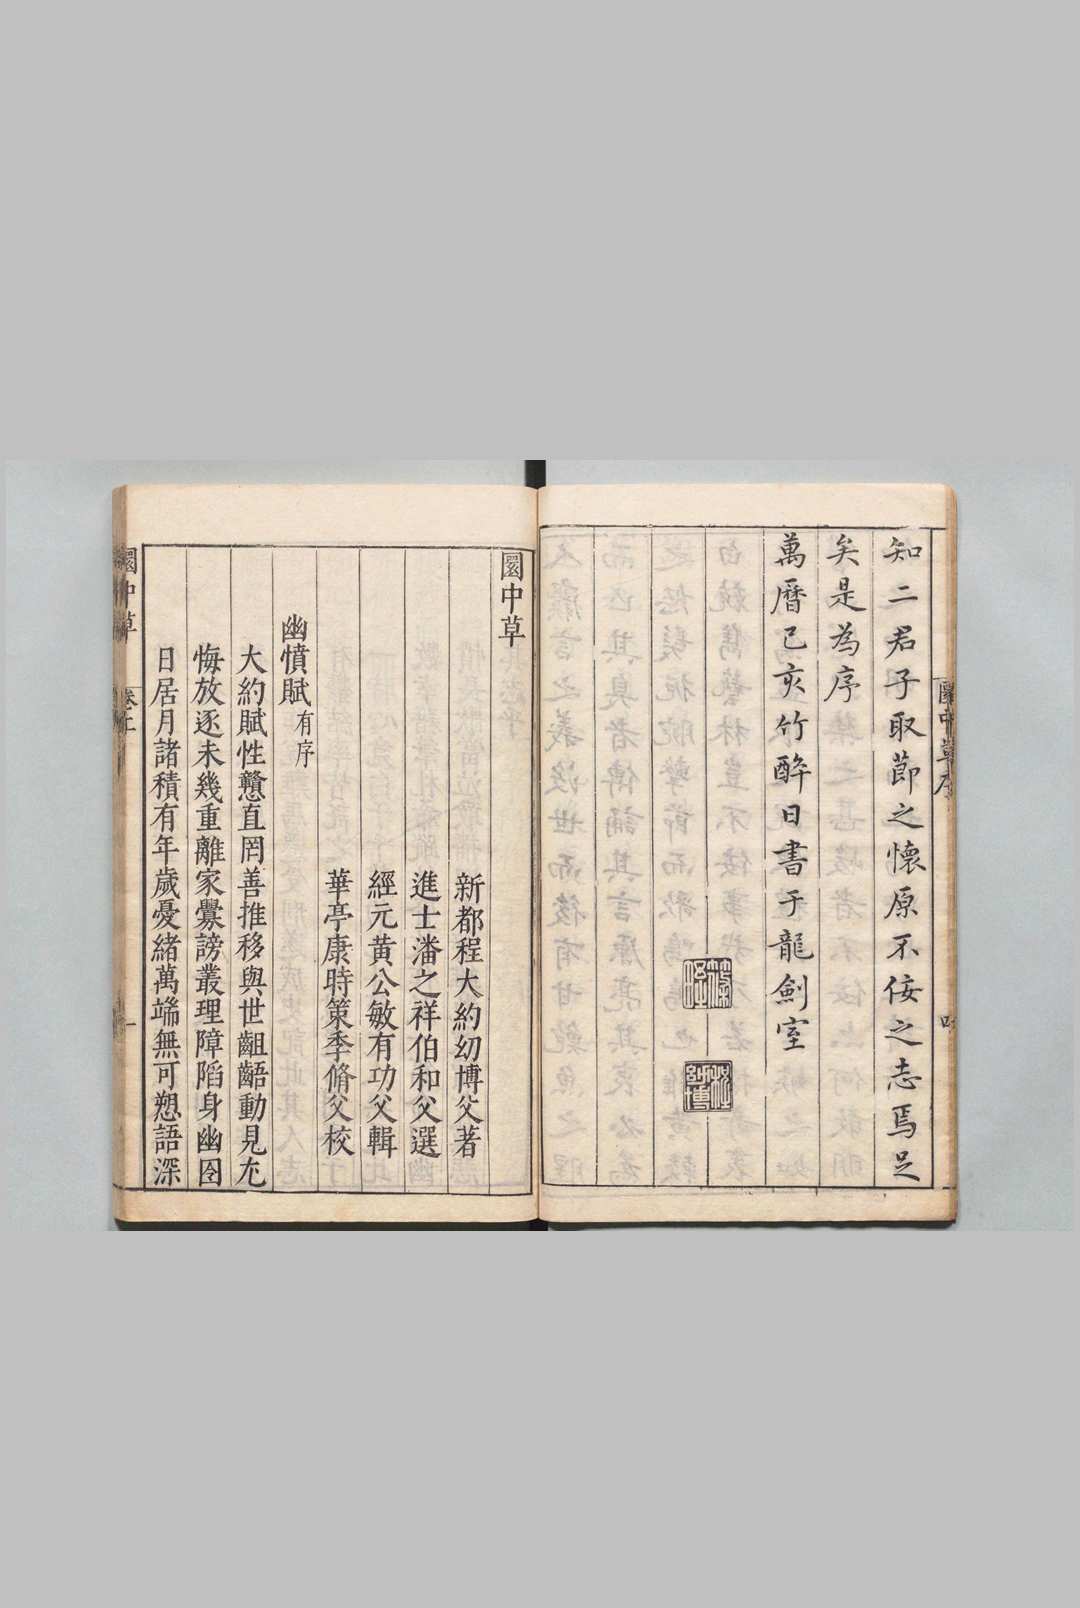 知二君子取節之懷原不佞之志焉足
矣是為序
萬曆己亥竹醉日書于龍劍室
圜中草
新都程大約幼博父著
進士潘之祥伯和父選
經元黃公敏有功父輯
華亭康時策季脩父校
幽憤賦有序
大約賦性戇直罔善推移與世齟齬動見尤
悔放逐未幾重離家釁謗叢理障陷身幽囹
日居月諸積有年歲憂緒萬端無可愬語深
圜中草
卷上
一